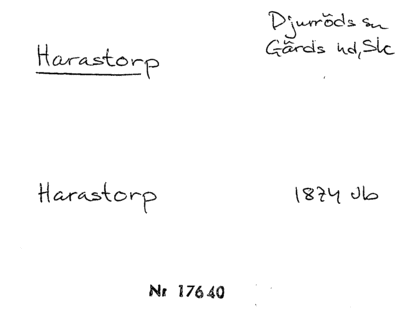 Harastorp
Djurröds sn
Gärds hd, Skc
Harastorp
1874 Jb
Nr 17640